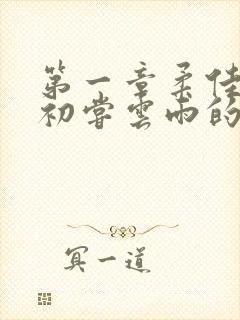 第一章柔佳
初尝雲雨的
冥一道